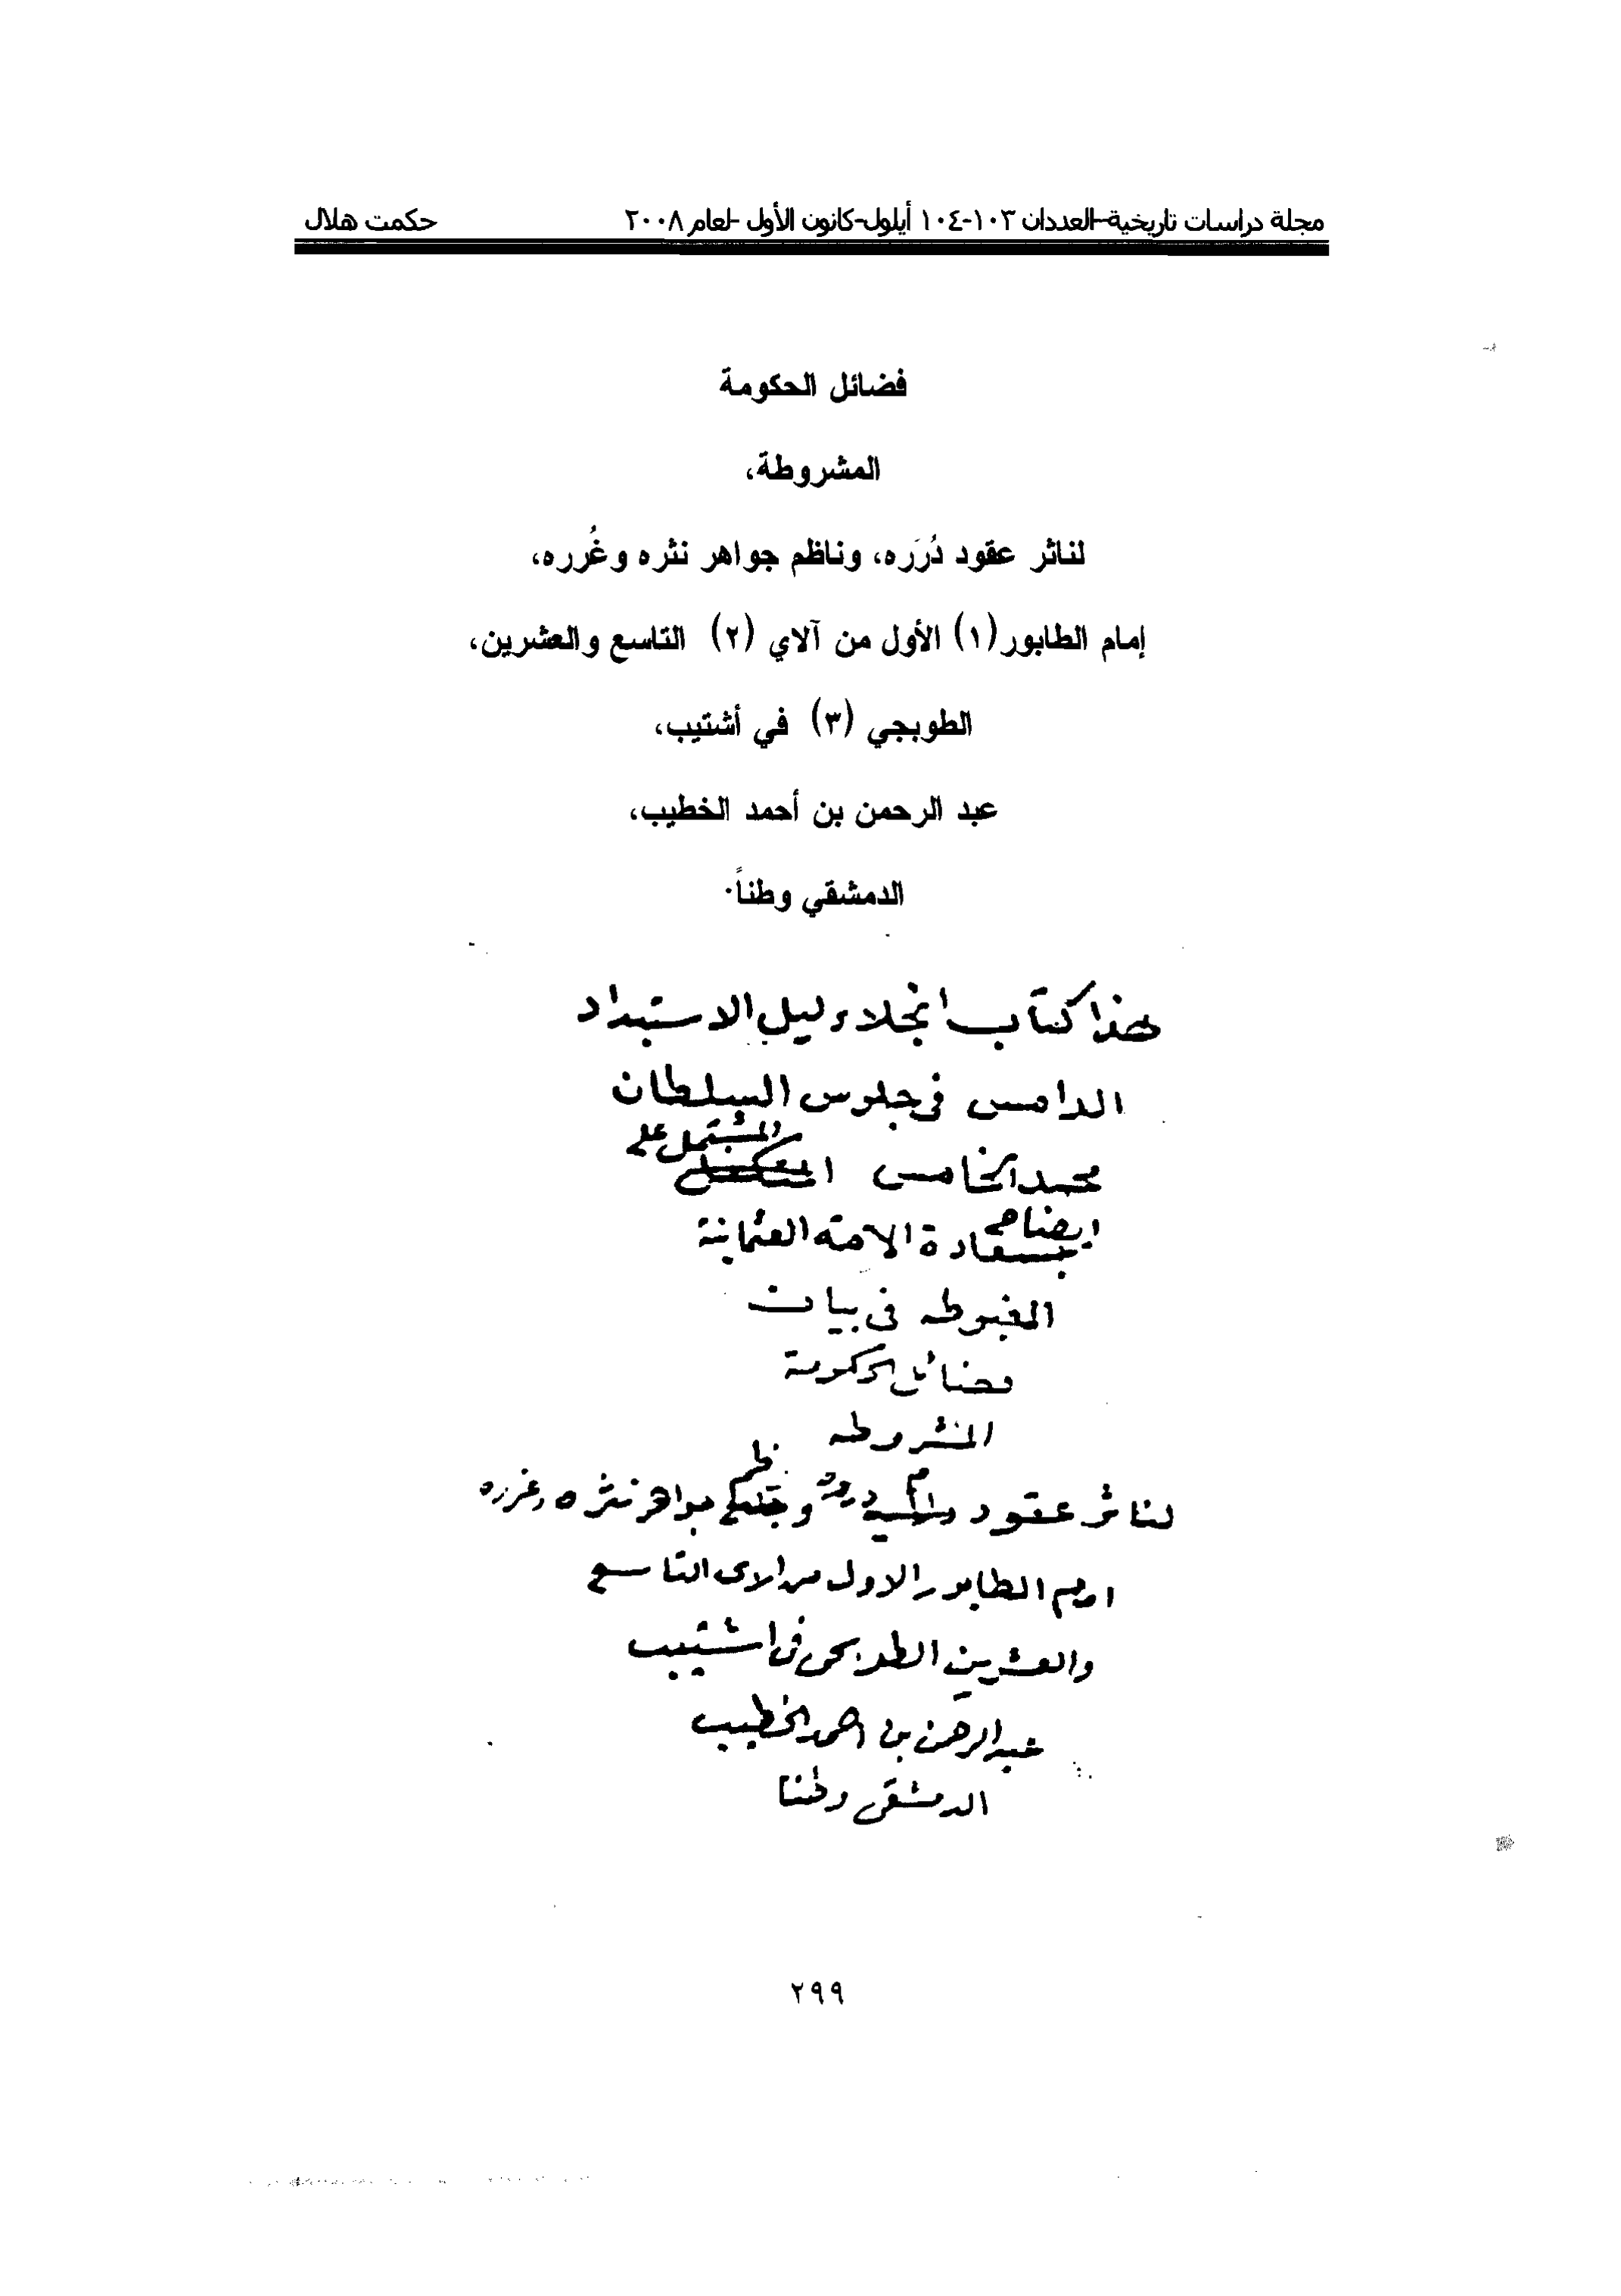 مجلة دراسات تاريخية-العددان ١٠٣-١٠٤ أيلول-كانون الأول -لعام ٢٠٠٨ حكمت هلال
فضائل الحكومة
المشروطة،
لناثر عقود دُرَره، وناظم جواهر نثره وغُرره،
إمام الطابور(١) الأول من آلاي (٢) التاسع والعشرين،
الطوبجي (٣) في أشتيب،
عبد الرحمن بن أحمد الخطيب،
الدمشقي وطناً.
هذا كتاب انجلاء ليل الاستبداد
الدامس في جلوس السلطان
المشتمل على
محمد الخامس
ايضاح
سعادة الامة العثمانية
المغبوطه في بيان
فضائل الحكومة
المشروطه
ظم
لناثر عقود درره و جواهر نثره وغرره
امام الطابور الاول من الاى التاسع
والعشرين الطوبجى فى اشتيب
عبد الرحمن بن احمد الخطيب
الدمشقى وطنا
٢٩٩